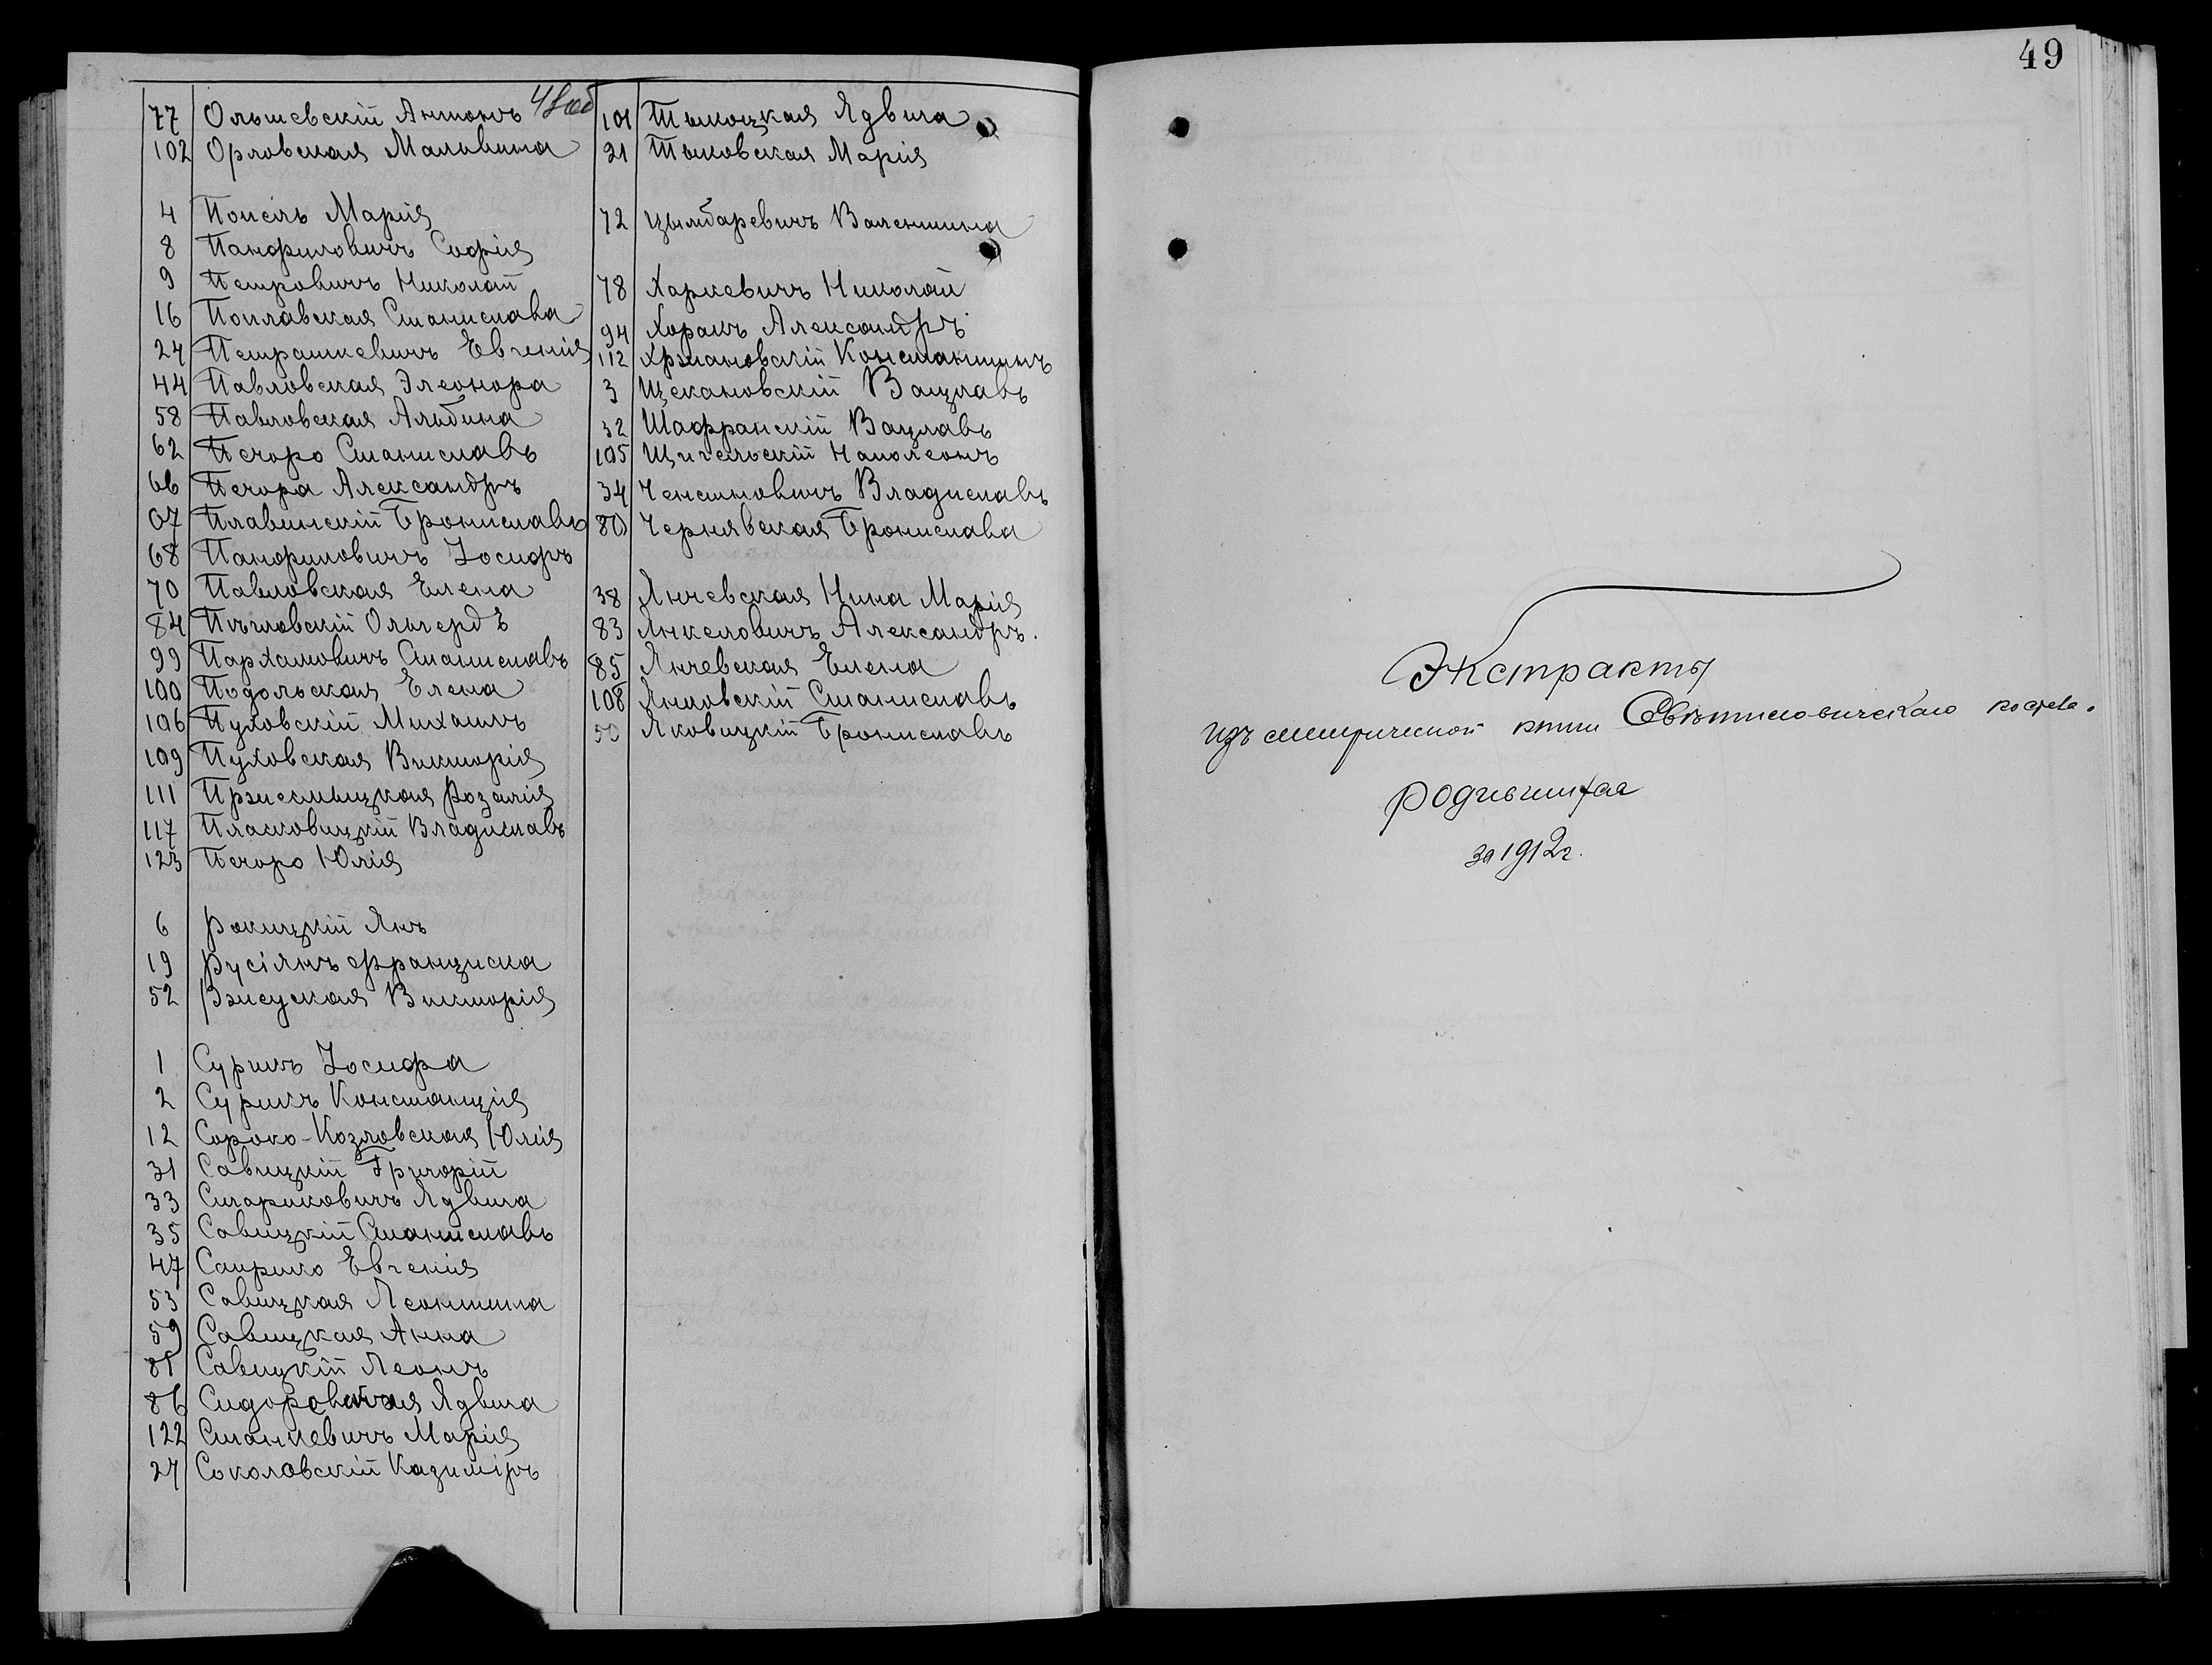 48об
77 Ольшевскій Антонъ
102 Орловская Мальвина
4 Попелъ Марія
8 Панфиловичъ Софія
9 Петровичъ Николай
16 Поплавская Станислава
24 Петрашкевичъ Евгенія
44 Павловская Элеонора
58 Павловская Альбина
62 Печоро Станиславъ
66 Печора Александръ
67 Плавинскій Брониславъ
68 Панфиловичъ Іосифъ
70 Павловская Елена
84 Пъгловскій Ольгердъ
99 Пархамовичъ Станиславъ
100 Подольская Елена
106 Пуховскій Михаилъ
109 Пуховская Викторія
111 Пржесмыцкая Розалія
117 Пласковицкій Владиславъ
123 Печоро Юлія
6 Рокицкій Янъ
19 Русіянъ Франциска
52 Викторія
1 Сурикъ Іосифа
2 Сурикъ Констанція
12 Сороко-Козловская Юлія
31 Савицкій Григорій
33 Стариковичъ Ядвига
35 Савицкій Станиславъ
47 Евгенія
53 Савицкая Леонтина
59 Савицкая Анна
81 Савицкій Леонъ
86 Ядвига
122 Станкевичъ Марія
27 Соколовскій Казиміръ
101 Тыкоцкая Ядвига
21 Тыковская Марія
72 Цымбаревичъ Валентина
78 Харкевичъ Николай
94 Хоракъ Александръ
112 Хржановскій Константинъ
3 Щекановскій Вацлавъ
32 Шафранскій Вацлавъ
105 Щигельскій Наполеонъ
34 Ченстновичъ Владиславъ
80 Чернявская Бронислава
38 Янчевская Нина Марія
83 Янкеловичъ Александръ.
85 Янчевская Елена
108 Янковскій Станиславъ
50 Яковицкій Брониславъ
49
Экстракты
изъ метрической книги костела.
родившихся
за 1912г.